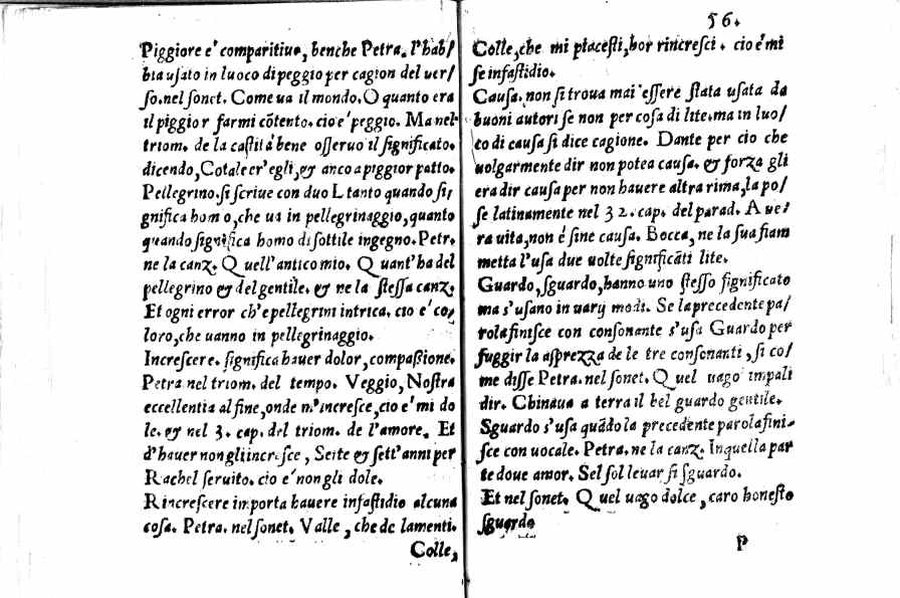 Piggiore e' comparitiuo, benche Petra. l'hab/
bia usato in luoco di peggio per cagion del uer/
so. nel sonet. Come ua il mondo. O quanto era
il piggior farmi cōtento. cio e' peggio. Ma nel
triom. de la castità bene osseruo il significato.
dicendo, Cotale er' egli, & anco a piggior patto.
Pellegrino. si scriue con duo L tanto quando si/
gnifica homo, che ua in pellegrinaggio, quanto
quando significa homo di sottile ingegno. Petr.
ne la canz. Quell'antico mio. Quant'ha del
pellegrino & del gentile. & ne la stessa canz.
Et ogni error ch'e pellegrini intrica. cio é co/
loro, che uanno in pellegrinaggio.
Increscere. significa hauer dolor, compassione.
Petra nel triom. del tempo. Veggio, Nostra
eccellentia al fine, onde n'incresce, cio e' mi do
le. & nel 3. cap. del triom. de l'amore. Et
d'hauer non gli incresce, Sette & sett'anni per
Rachel seruito. cio é non gli dole.
Rincrescere importa hauere infastidio alcuna
cosa. Petra. nel sonet. Valle, che de lamenti.
Colle,
56.
Colle, che mi piacesti, hor rincresci. cio é mi
se infastidio.
Causa. non si troua mai essere stata usata da
buoni autori se non per cosa di lite. ma in luo/
co di causa si dice cagione. Dante per cio che
uolgarmente dir non potea causa. & forza gli
era dir causa per non hauere altra rima, la po/
se latinamente nel 32. cap. del parad. A ue/
ra uita, non é sine causa. Bocca, ne la sua fiam
metta l'usa due uolte significāti lite.
Guardo, sguardo, hanno uno stesso significato
ma s'usano in uary modi. Se la precedente pa/
rola finisce con consonante s'usa Guardo per
fuggir la asprezza de le tre consonanti, si co/
me disse Petra. nel sonet. Quel uago impali
dir. Chinaua a terra il bel guardo gentile.
Sguardo s'usa quādo la precedente parola fini-
sce con uocale. Petra. ne la canz. In quella par
te doue amor. Se'l sol leuar si sguardo.
Et nel sonet. Quel uago dolce, caro honesto
sguardo
P